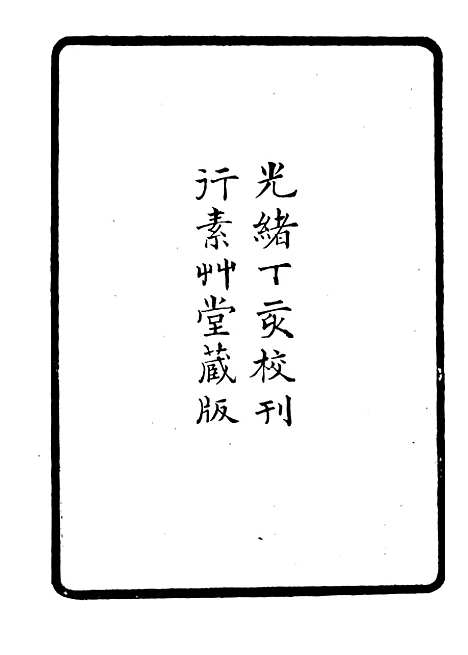 光緒丁亥校刊
行素艸堂藏版